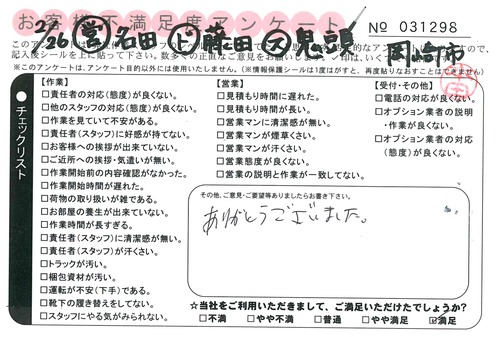 お客様不満足度アンケート
No 031298
2/26 営 名田 ド 藤田 ス 鬼頭 岡崎市
記入後シールを上に貼って下さい。
(※このアンケートは、アンケート目的以外には使用いたしません。)(※情報保護シールは1度はがすと、再度貼りなおすことはできません)
チェックリスト
【作業】
□責任者の対応(態度)が良くない。
□他のスタッフの対応(態度)が良くない。
□作業を見ていて不安がある。
□責任者(スタッフ)に好感が持てない。
□お客様への挨拶が出来ていない。
□ご近所への挨拶・気遣いが無い。
□作業開始前の内容確認がなかった。
□作業開始時間が遅れた。
□荷物の取り扱いが雑である。
□お部屋の養生が出来ていない。
□作業時間が長すぎる。
□責任者(スタッフ)に清潔感が無い。
□責任者(スタッフ)が汗くさい。
□トラックが汚い。
□梱包資材が汚い。
□運転が不安(下手)である。
□靴下の履き替えをしてない。
□スタッフにやる気がみられない。
【営業】
□見積もり時間に遅れた。
□見積もり時間が長い。
□営業マンに清潔感が無い。
□営業マンが煙草くさい。
□営業マンが汗くさい。
□営業態度が良くない。
□営業の説明と作業が一致してない。
【受付・その他】
□電話の対応が良くない。
□オプション業者の説明
・作業が良くない。
□オプション業者の対応
(態度)が良くない。
その他、ご意見・ご要望等ありましたらお書き下さい。
ありがとうございました。
☆当社をご利用いただきまして、ご満足いただけたでしょうか?
□不満 □やや不満 □普通 □やや満足 ☑満足